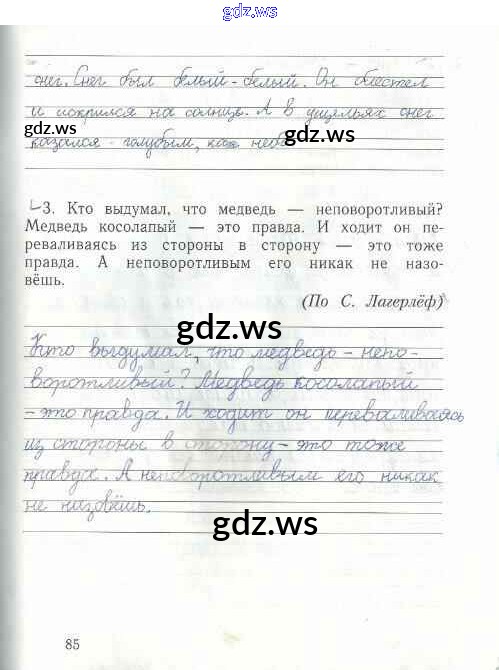 gdz.ws
снег. Снег был белый-белый. Он блестел
и искрился на солнце. А в ущельях снег
gdz.ws
gdz.ws
казался - голубым, как небо
3. Кто выдумал, что медведь — неповоротливый?
Медведь косолапый — это правда. И ходит он пе-
реваливаясь из стороны в сторону — это тоже
правда. А неповоротливым его никак не назо-
вёшь.
(По С. Лагерлёф)
gdz.ws
Кто выдумал, что медведь - непо-
воротливый? Медведь косолапый
- это правда. И ходит он переваливаясь
из стороны в сторону - это тоже
правда. А неповоротливым его никак
не назовёшь.
gdz.ws
85